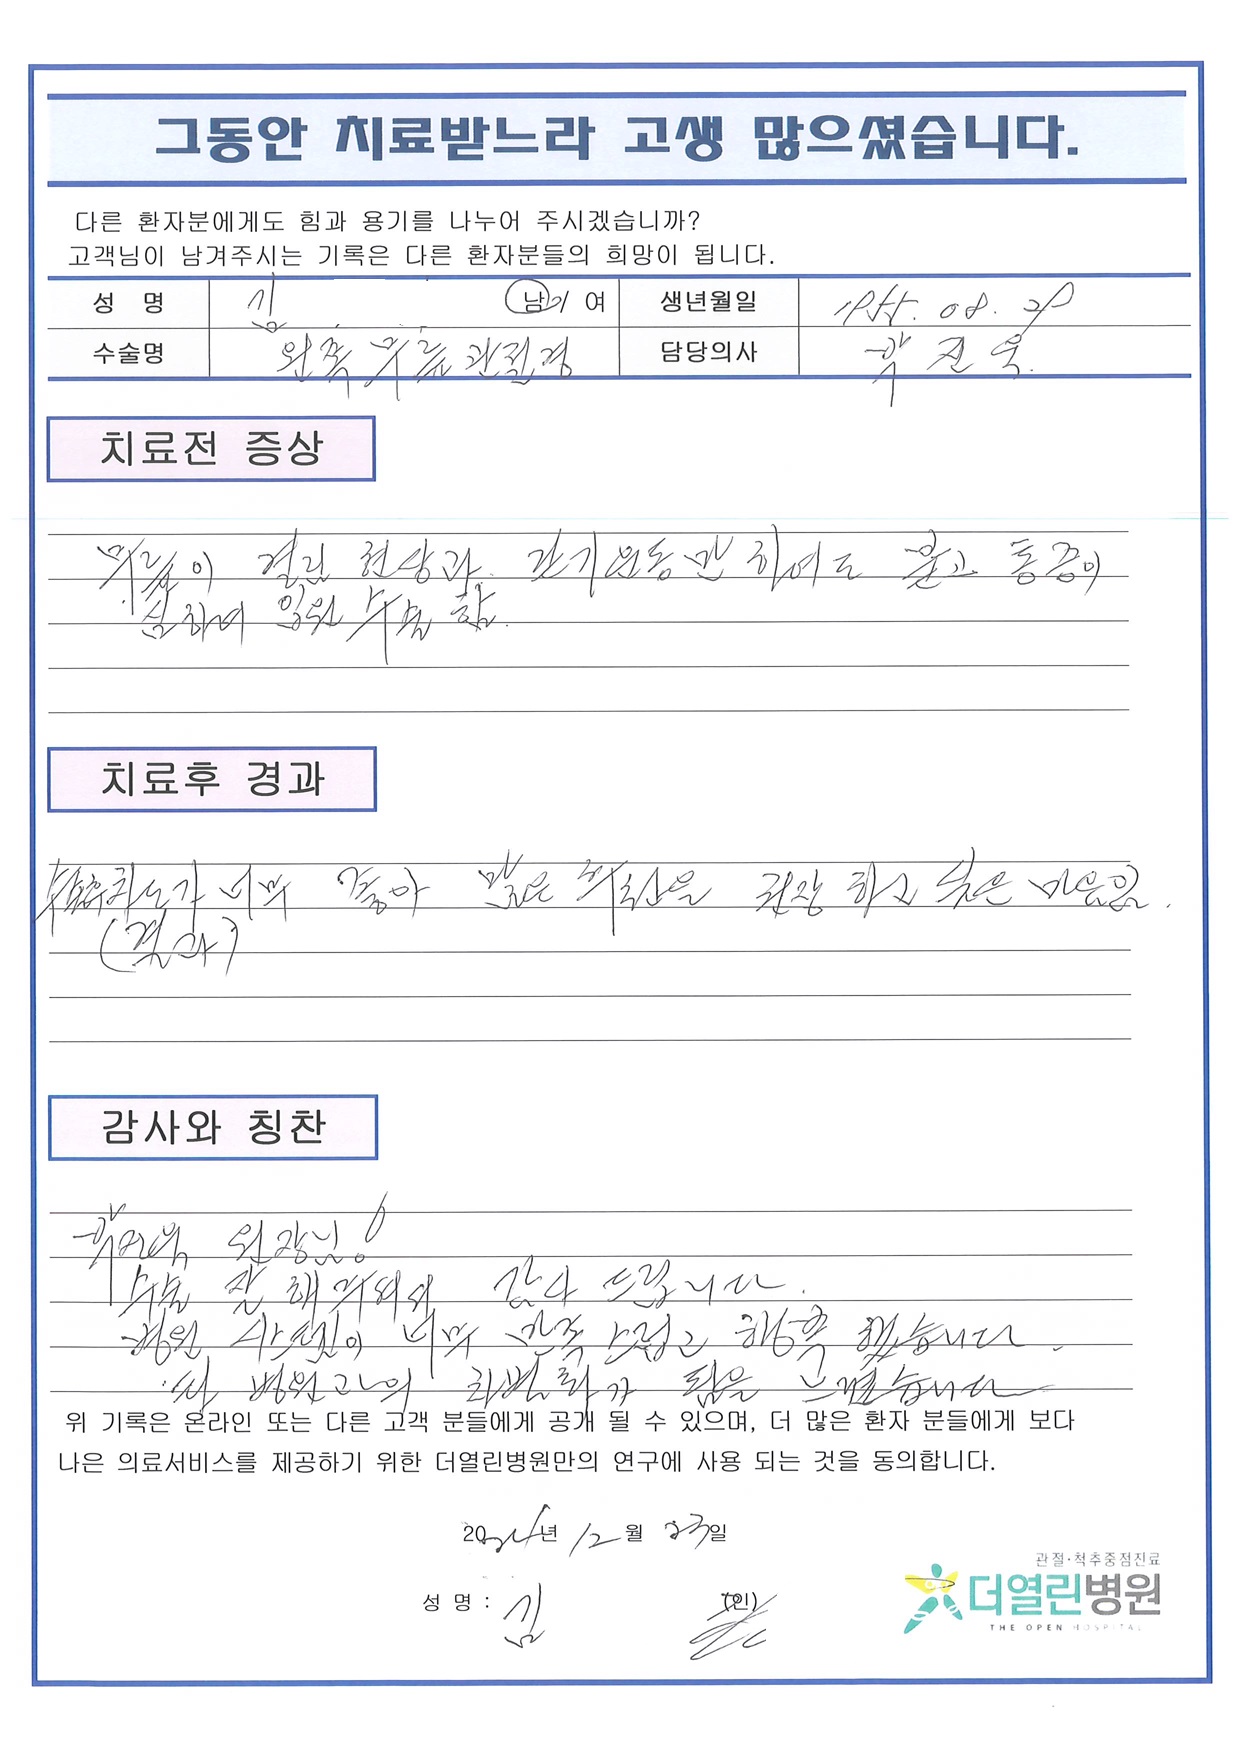 그동안 치료받느라 고생 많으셨습니다.
다른 환자분에게도 힘과 용기를 나누어 주시겠습니까?
고객님이 남겨주시는 기록은 다른 환자분들의 희망이 됩니다.
성 명 김 남 / 여 생년월일 1955. 08. 29
수술명 왼쪽 무릎 관절경 담당의사 박진욱.
치료전 증상
무릎이 걸림 현상과 걷기운동만 하여도 붓고 통증이
심하여 입원 수술 함.
치료후 경과
가 너무 좋아 많은 환자분을 권장 하고 싶은 마음임.
(결과)
감사와 칭찬
박진욱 원장님!
수술 잘 해주셔서 감사 드립니다.
병원 시스템이 너무 만족스럽고 행복 했습니다.
타 병원과의 차별화가 됨을 느꼈습니다
위 기록은 온라인 또는 다른 고객 분들에게 공개 될 수 있으며, 더 많은 환자 분들에게 보다
나은 의료서비스를 제공하기 위한 더열린병원만의 연구에 사용 되는 것을 동의합니다.
2024년 12월 23일
관절·척추중점진료
더열린병원
THE OPEN HOSPITAL
성 명 : 김 (인)